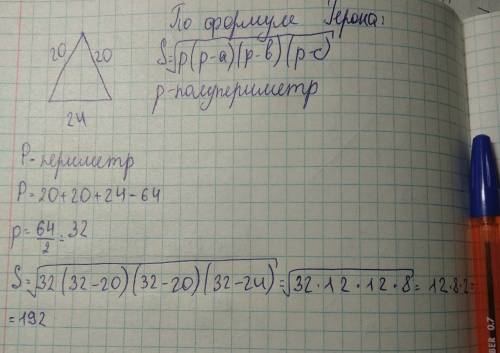 По формуле Герона:
20 20
S=√p(p-a)(p-b)(p-c)
24
p-полупериметр
P-периметр
P=20+20+24-64
p=64/2=32
S=√32(32-20)(32-20)(32-24)=√32·12·12·8=12·8·2=
=192
0.7